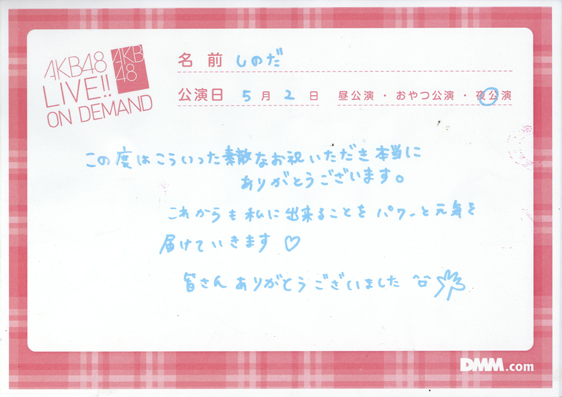 AKB48
LIVE!!
ON DEMAND
AKB
48
名前 しのだ
公演日 5月2日 昼公演・おやつ公演・夜公演
この度はこういった素敵なお祝いただき本当に
ありがとうございます。
これからも私に出来ることをパワーと元気を
届けていきます♡
皆さんありがとうございました
DMM.com